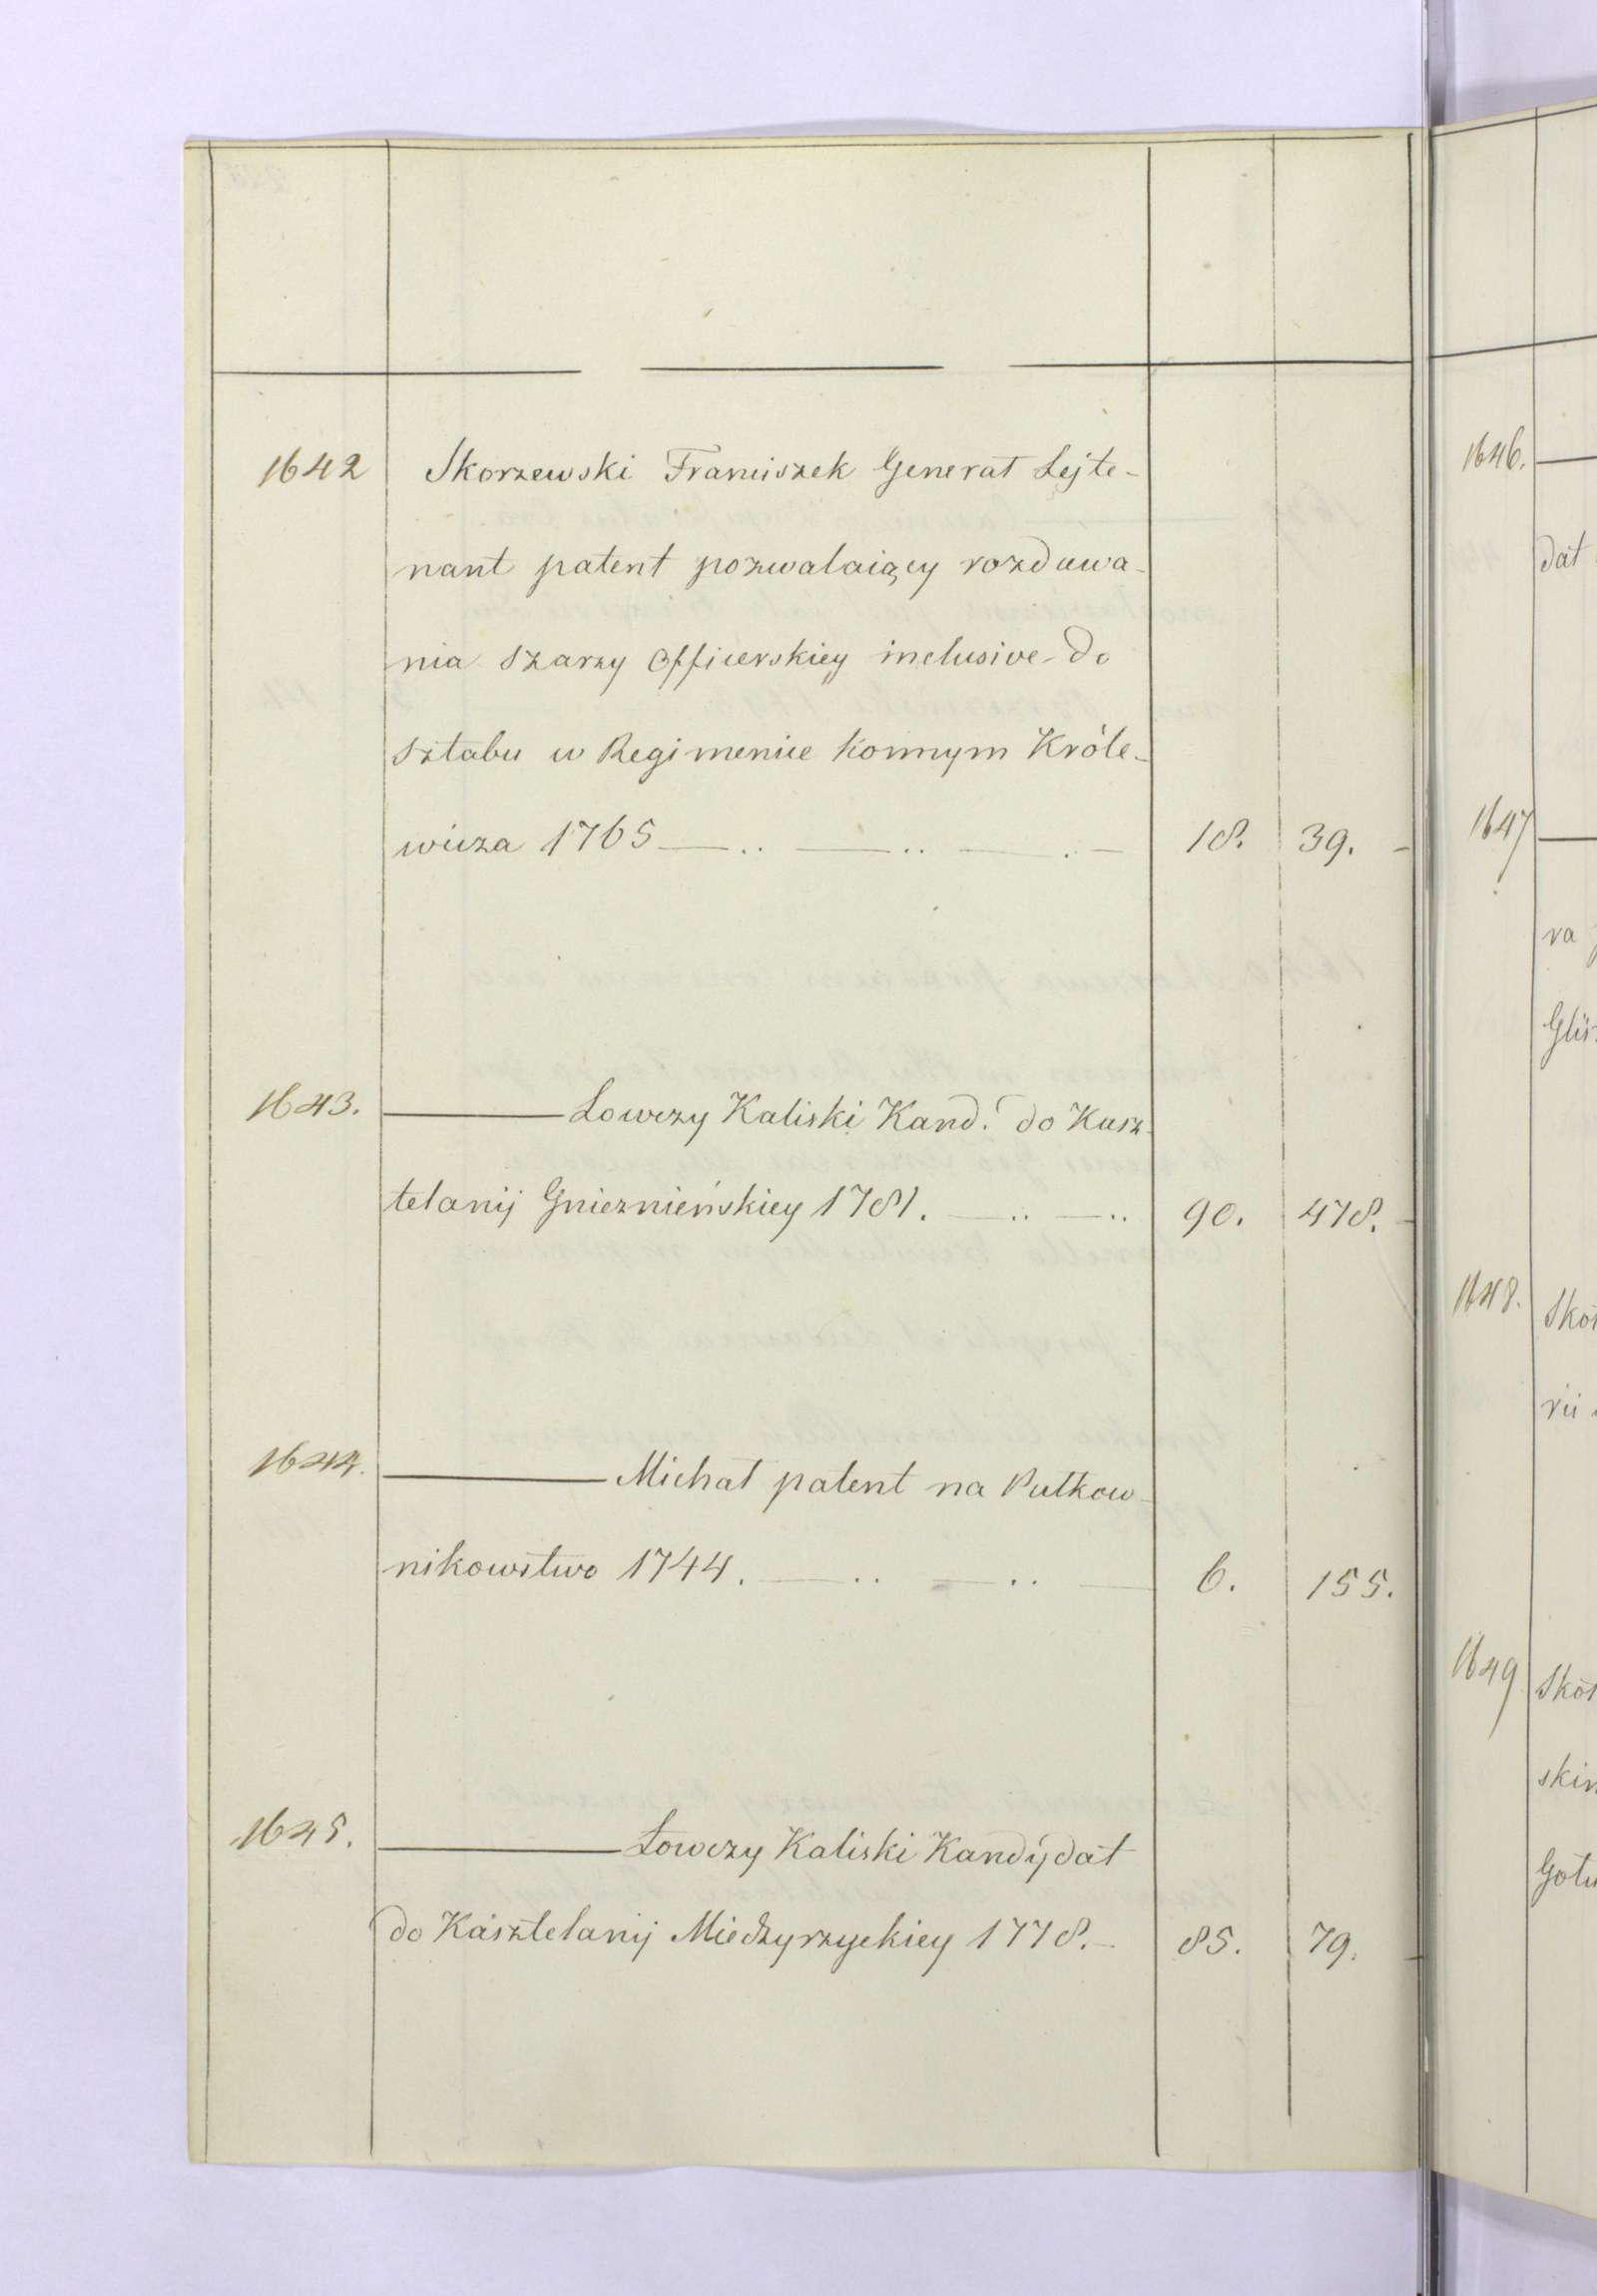 1642 Skorzewski Franciszek Generał Lejte-
nant patent pozwalaiący rozdawa-
nia szarzy Officerskiey inclusive do
sztabu w Regimencie konnym Króle-
wicza 1765 — .. — .. — . — 18. 39. -
1643. ——— Łowczy Kaliski Kand. do Kasz-
telanij Gnieznieńskiey 1781. — .. — .. 90. 478.
1644. ——— Michał patent na Pułkow-
nikowstwo 1744. — .. — .. — 6. 155.
1645. ——— Łowczy Kaliski Kandydat
do Kasztelanij Miedzyrzyckiey 1778. - 85. 79.
1646. —
dat
1647 —
ra
1648. Skor
rii
1649 Skor
skin